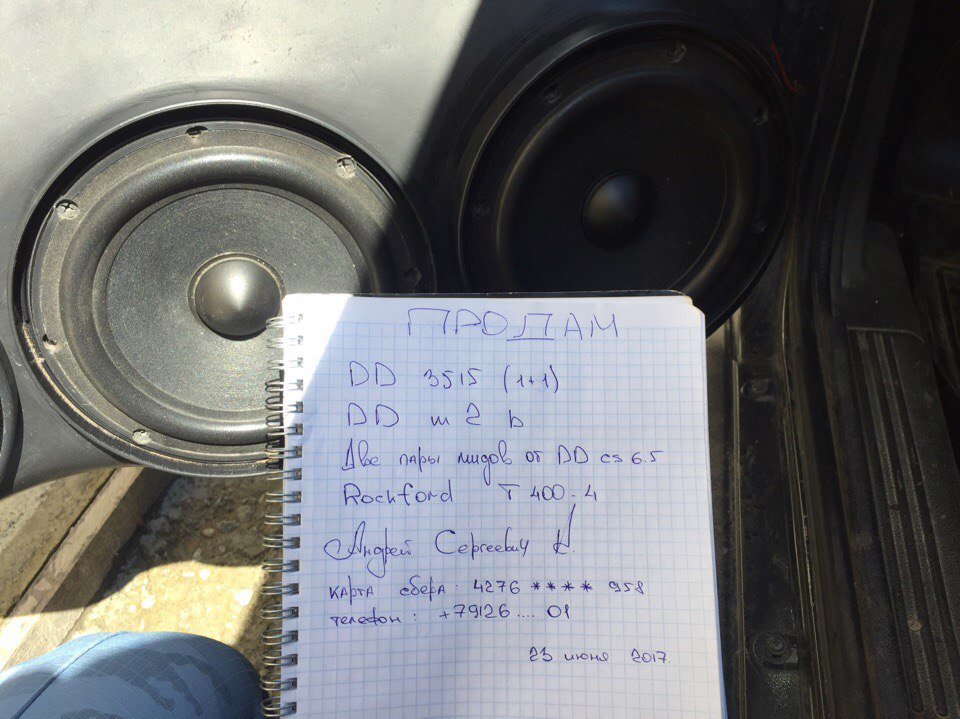 ПРОДАМ
DD 3515 (1+1)
DD m 2 b
Две пары мидов от DD cs 6.5
Rockford T 400-4
Андрей Сергеевич К.
карта сбера: 4276 **** 958
телефон: +79126.... 01
23 июня 2017